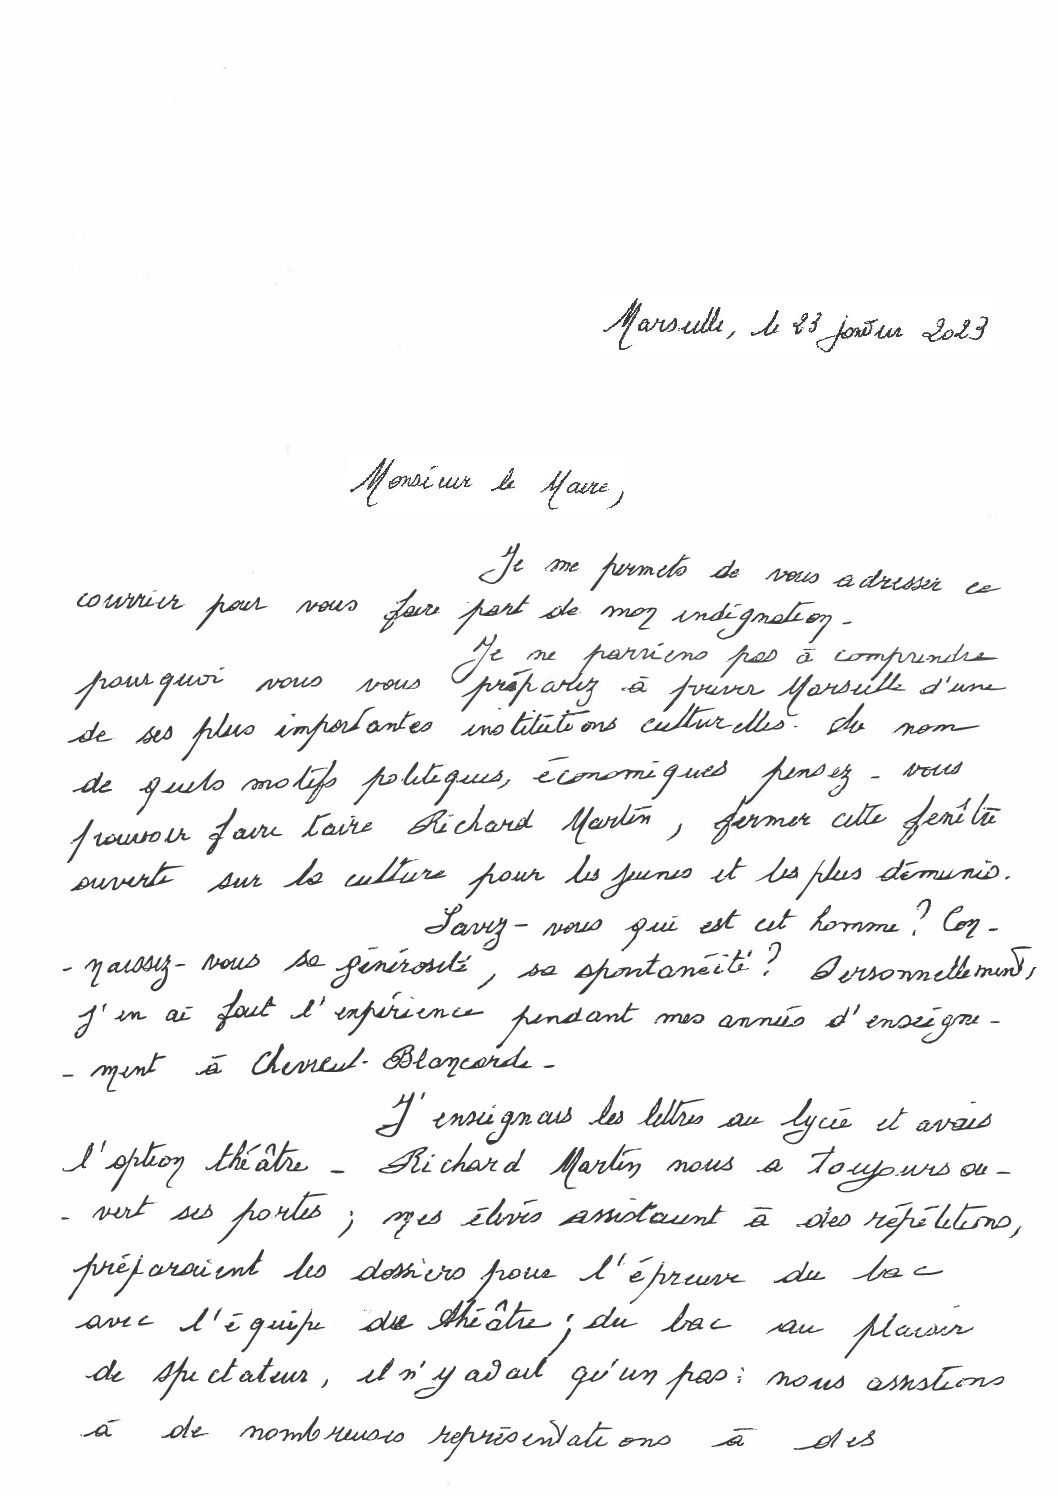 Marseille, le 23 janvier 2023
Monsieur le Maire,
Je me permets de vous adresser ce
courrier pour vous faire part de mon indignation.
Je ne parviens pas à comprendre
pourquoi vous vous préparez à priver Marseille d'une
de ses plus importantes institutions culturelles. Au nom
de quels motifs politiques, économiques pensez-vous
pouvoir faire taire Richard Martin, fermer cette fenêtre
ouverte sur la culture pour les jeunes et les plus démunis.
Savez-vous qui est cet homme ? Con-
-naissez-vous sa générosité, sa spontanéité ? Personnellement,
j'en ai fait l'expérience pendant mes années d'enseigne-
-ment à Chevreul-Blancarde.
J'enseignais les lettres au lycée et avais
l'option théâtre. Richard Martin nous a toujours ou-
-vert ses portes ; mes élèves assistaient à des répétitions,
préparaient les dossiers pour l'épreuve du bac
avec l'équipe du théâtre ; du bac au plaisir
de spectateur, il n'y avait qu'un pas : nous assistions
à de nombreuses représentations à des